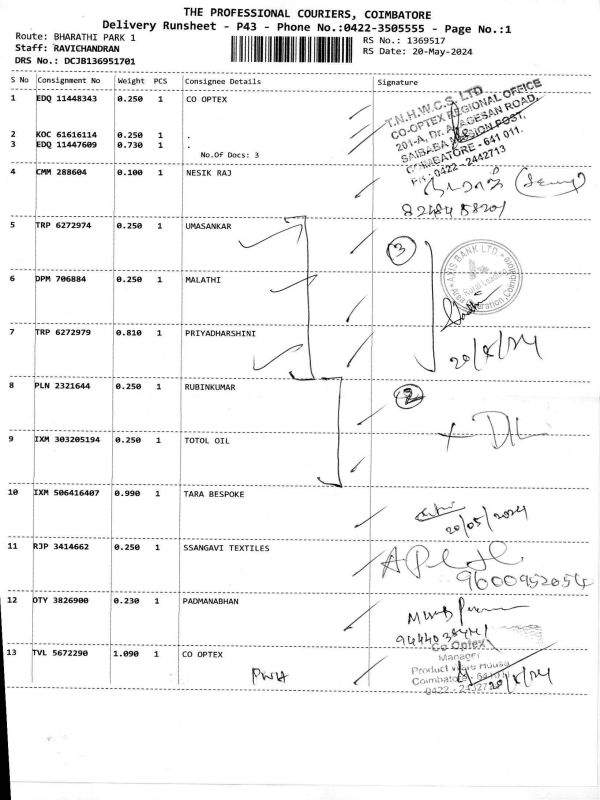 THE PROFESSIONAL COURIERS, COIMBATORE
Delivery Runsheet - P43 - Phone No.:0422-3505555 - Page No.:1
Route: BHARATHI PARK 1
RS No.: 1369517
Staff: RAVICHANDRAN
RS Date: 20-May-2024
DRS No.: DCJB136951701
S No Consignment No Weight PCS Consignee Details Signature
1 EDQ 11448343 0.250 1 CO OPTEX
T.N.H.W.C.S. LTD
CO-OPTEX REGIONAL OFFICE
201-A, Dr. ROAD,
SAIBABA MISSION POST,
COIMBATORE - 641 011.
PH: 0422 - 2442713
2 KOC 61616114 0.250 1 .
3 EDQ 11447609 0.730 1 .
No.Of Docs: 3
4 CMM 288604 0.100 1 NESIK RAJ
5 TRP 6272974 0.250 1 UMASANKAR
3
AXIS BANK LTD.
6 DPM 706884 0.250 1 MALATHI
7 TRP 6272979 0.810 1 PRIYADHARSHINI
8 PLN 2321644 0.250 1 RUBINKUMAR
2
9 IXM 303205194 0.250 1 TOTOL OIL
10 IXM 506416407 0.990 1 TARA BESPOKE
20/05/2024
11 RJP 3414662 0.250 1 SSANGAVI TEXTILES
9600952654
12 OTY 3826900 0.230 1 PADMANABHAN
13 TVL 5672290 1.090 1 CO OPTEX
PWH
Co Optex
Manager
Product Ware House